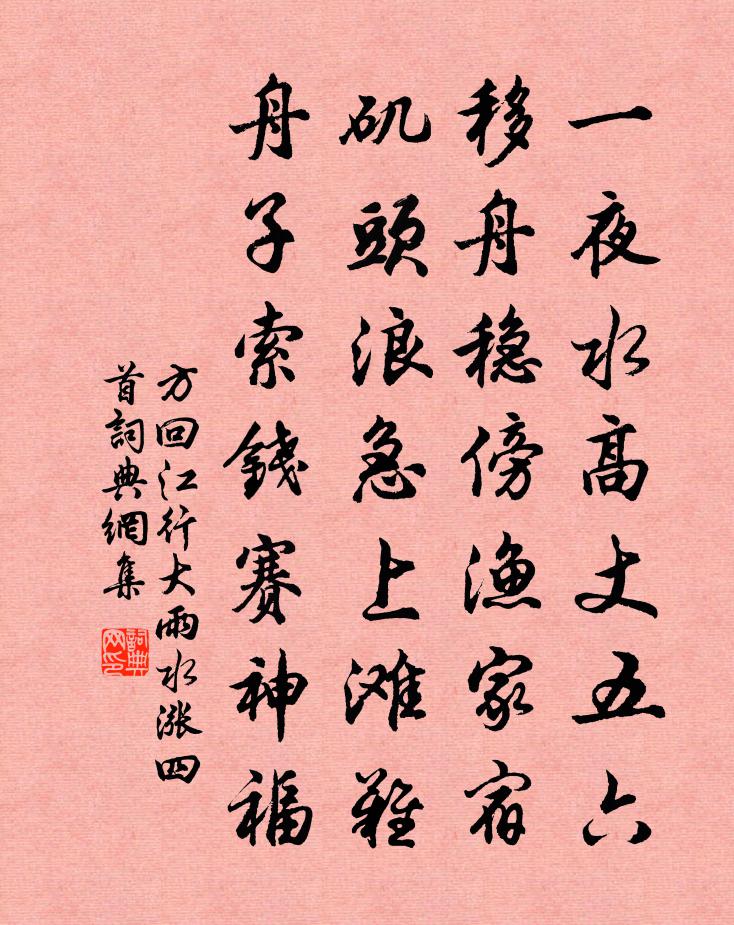 一夜水高丈五六
移舟稳傍渔家宿
矶頭浪急上滩難
舟子索錢賽神福
方回江行大雨水漲四
首詞典網集
詞典
网印